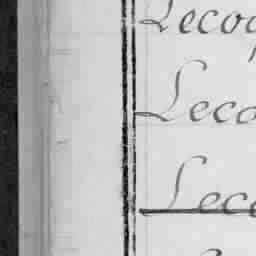 Lecoq
Leco
Leco